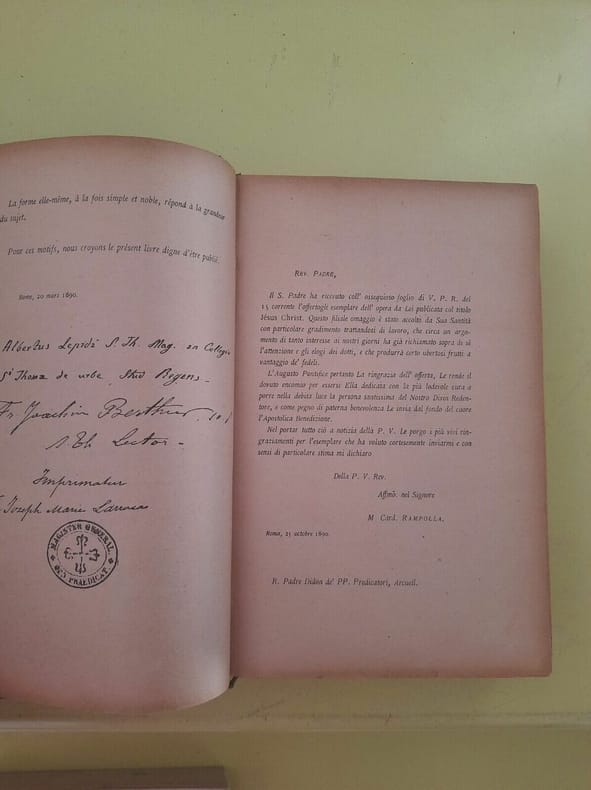 La forme elle-même, à la fois simple et noble, répond à la grandeur
du sujet.
Pour ces motifs, nous croyons le présent livre digne d'être publié.
Rome, 20 mars 1890.
Albertus Lepidi S. Th. Mag. en Collegio
Sti Thomæ de urbe, Stud. Regens
Fr. Joachim Berthier
S. Th. Lector
Imprimatur
Joseph Maria Larroca
MAGISTER GENERAL.
ORD. PRAEDICAT.
REV. PADRE,
Il S. Padre ha ricevuto coll' ossequioso foglio di V. P. R. del
15 corrente l'offertogli esemplare dell' opera da Lei publicata col titolo
Jésus Christ. Questo filiale omaggio è stato accolto da Sua Santità
con particolare gradimento trattandosi di lavoro, che circa un argo-
mento di tanto interesse ai nostri giorni ha già richiamato sopra di sè
l'attenzione e gli elogi dei dotti, e che produrrà certo ubertosi frutti a
vantaggio de' fedeli.
L'Augusto Pontefice pertanto La ringrazia dell' offerta, Le rende il
dovuto encomio per essersi Ella dedicata con la più lodevole cura a
porre nella debita luce la persona santissima del Nostro Divin Reden-
tore, e come pegno di paterna benevolenza Le invia dal fondo del cuore
l'Apostolica Benedizione.
Nel portar tutto ciò a notizia della P. V. Le porgo i più vivi rin-
graziamenti per l'esemplare che ha voluto cortesemente inviarmi e con
sensi di particolare stima mi dichiaro
Della P. V. Rev.
Affmō. nel Signore
M Card. RAMPOLLA.
Roma, 25 octobre 1890.
R. Padre Didon de' PP. Predicatori, Arcueil.